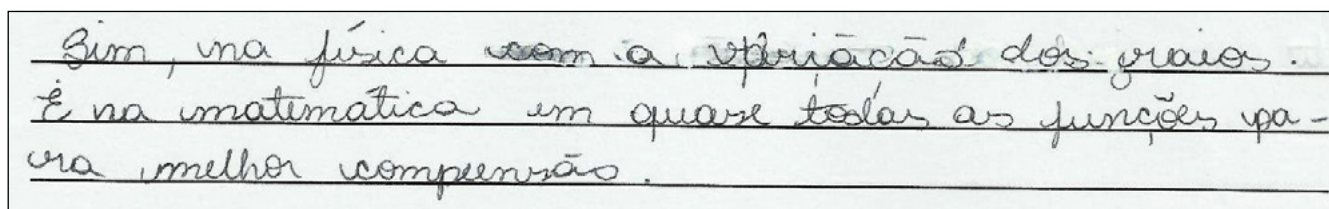 Sim, na física com a variação dos raios.
E na matemática em quase todas as funções pa-
ra melhor compreensão.